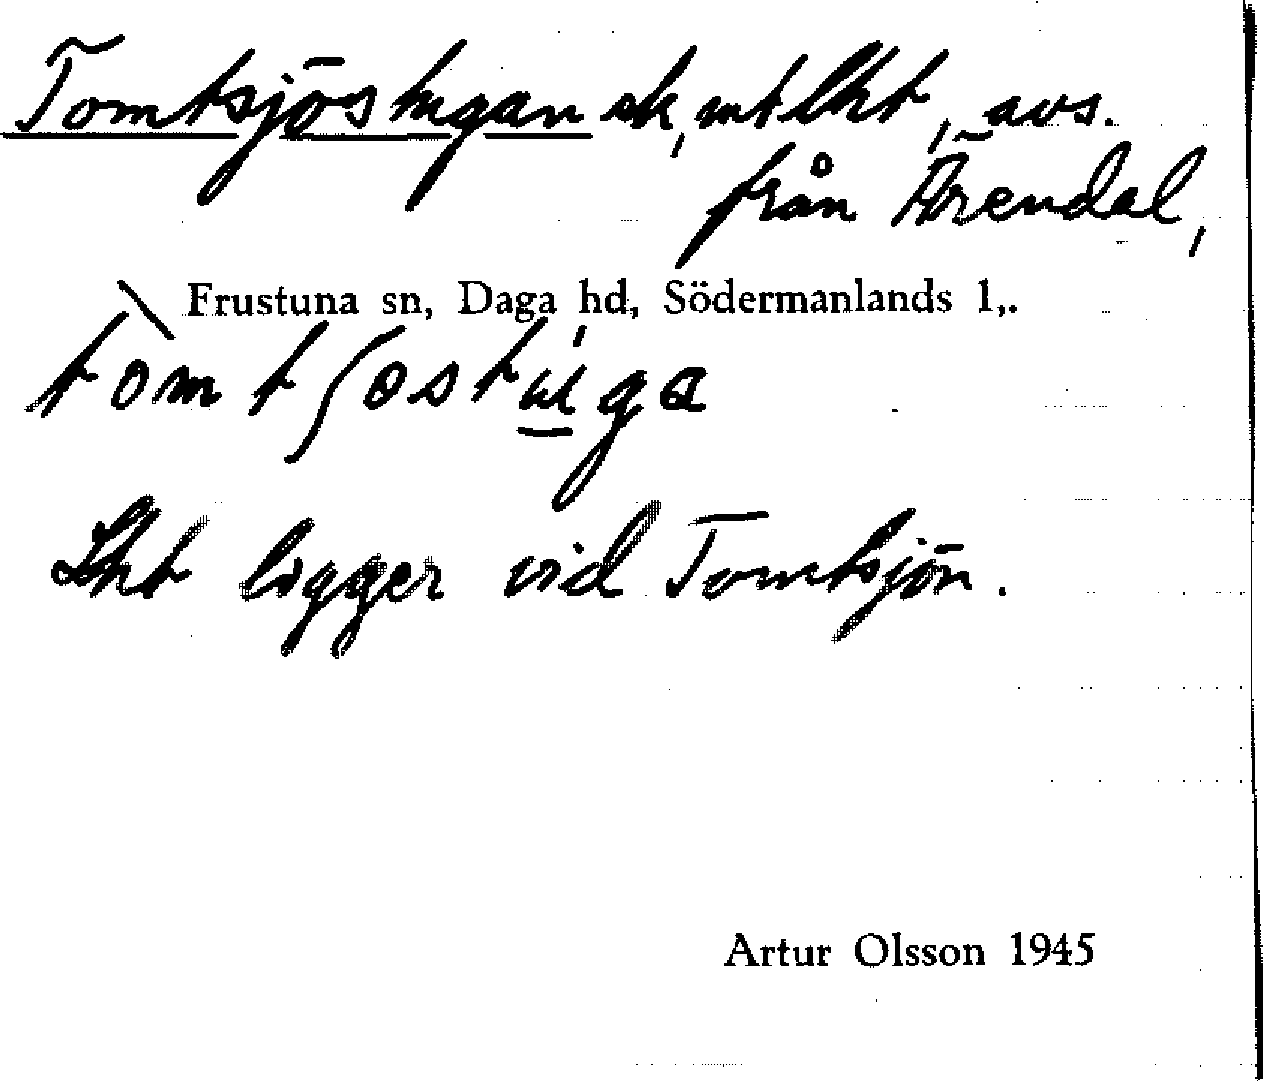 Tomtsjöstugan ek, mtlht, avs.
från Ärendal,
Frustuna sn, Daga hd, Södermanlands l,.
tòmtʃostúga
Lht ligger vid Tomtsjön.
Artur Olsson 1945